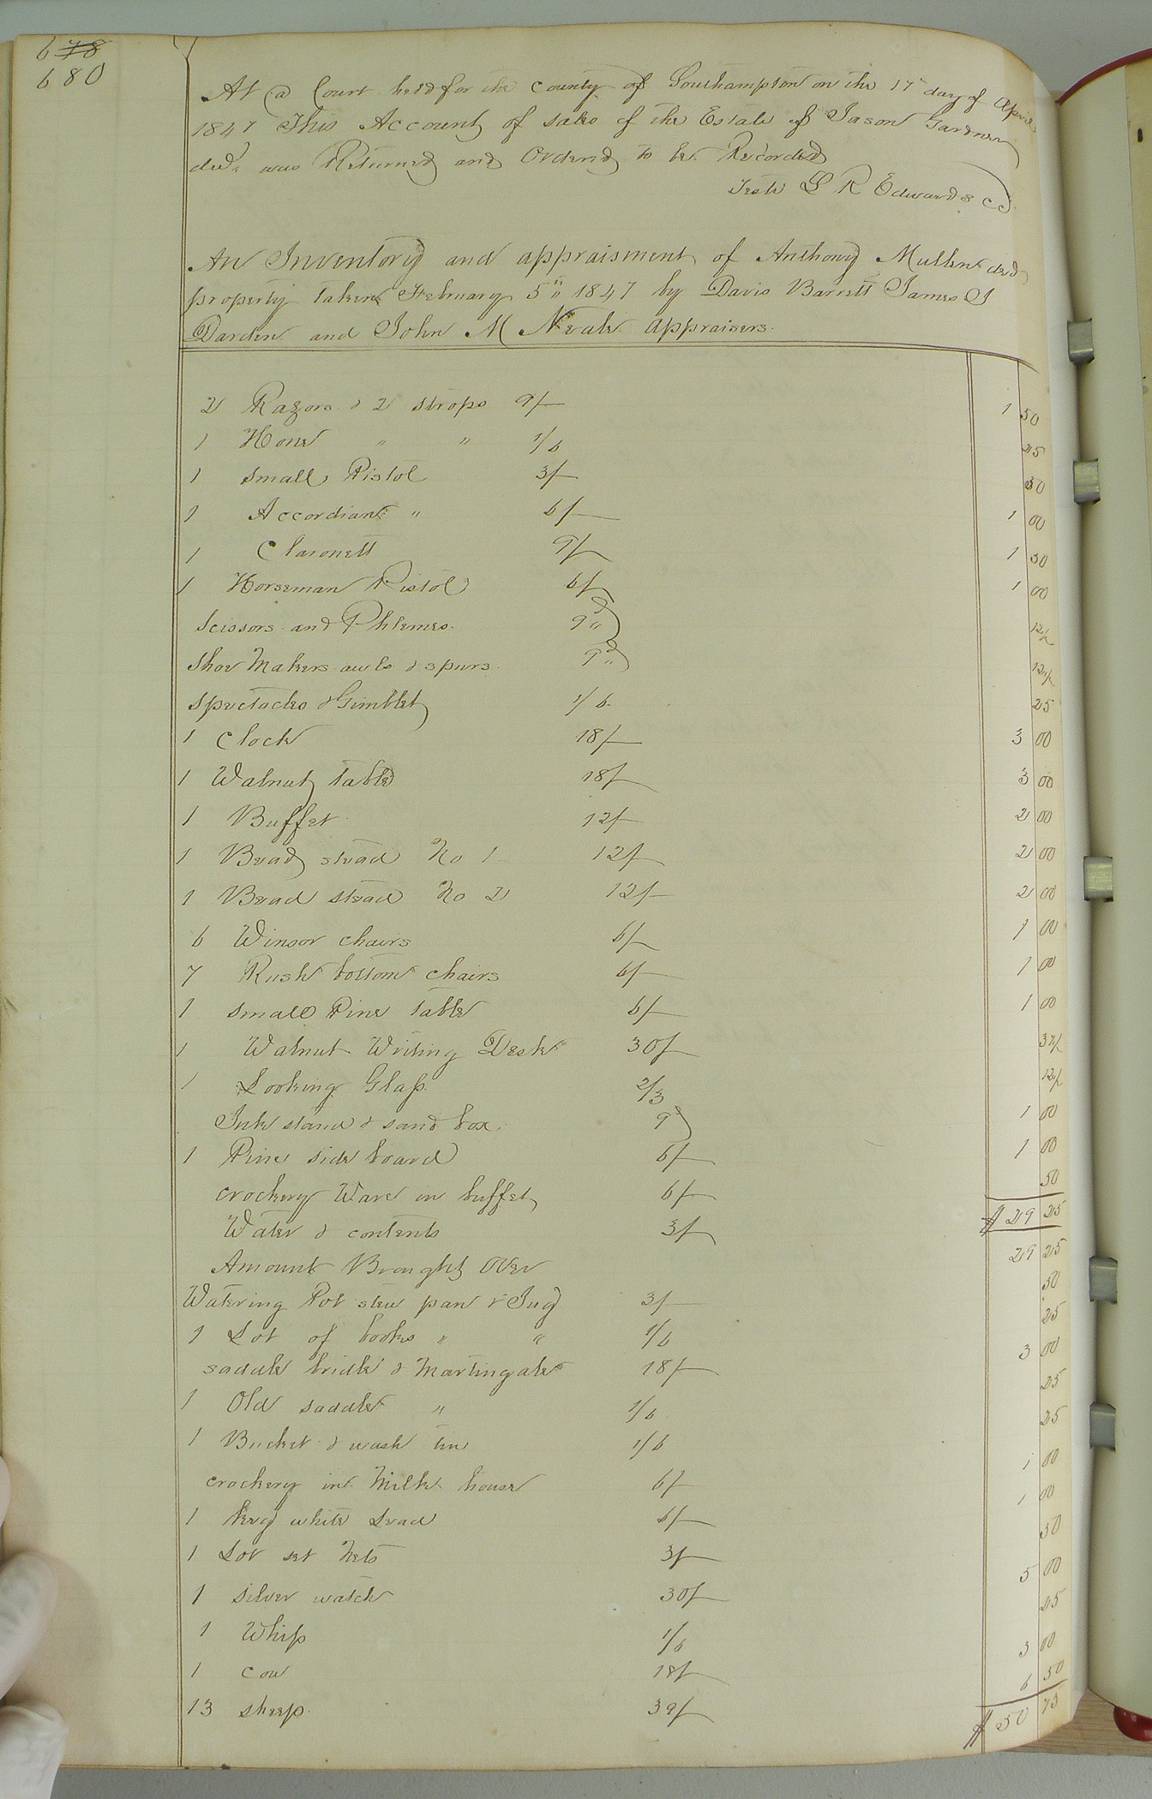 678
680
At a Court held for the County of Southampton on the 17th day of April
1847 This Account of sales of the Estate of Jason Gardner
decd. was Returned and Ordered to be Recorded
Teste L R Edwards C C
An Inventory and appraisment of Anthony Mullin decd
property taken February 5th 1847 by Davis Barrett James S
Darden and John M Neale appraisers.
2 Razors & 2 strops 9/— 1 50
1 Hone " " 1/6 25
1 small Pistol 3/— 50
1 Accordian " 6/— 1 00
1 Claronett 9/— 1 50
1 Horseman Pistol 6/— 1 00
Scissors and Phlemes. 9d 12½
Shoe Makers awls & spurs. 9d 12½
Spectacles & Gimblet 1/6. 25
1 Clock 18/— 3 00
1 Walnut table 18/— 3 00
1 Buffet 12/— 2 00
1 Bead stead No 1 12/— 2 00
1 Bead stead No 2 12/— 2 00
6 Winsor chairs 6/— 1 00
7 Rush bottom chairs 6/— 1 00
1 small Pine table 6/— 1 00
1 Walnut Writing Desk 30/— 37½
1 Looking Glass 2/3 12½
Ink stand & sand box. 9d 1 00
1 Pine side board 6/— 1 00
crockery Ware in buffet 6/— 50
Water & contents 3/— $29 25
Amount Brought Over 29 25
Watering Pot stew pan & Jug 3/— 50
1 Lot of books " " 1/6 25
saddle bridle & Martingale 18/— 3 00
1 Old saddle " 1/6 25
1 Bucket & wash tin 1/6 25
crockery in Milk house 6/— 1 00
1 keg white Lead 6/— 1 00
1 Lot set Nets 3/— 50
1 silver watch 30/— 5 00
1 Whip 1/6 25
1 cow 18/— 3 00
13 sheep. 39/— 6 50
$50 75